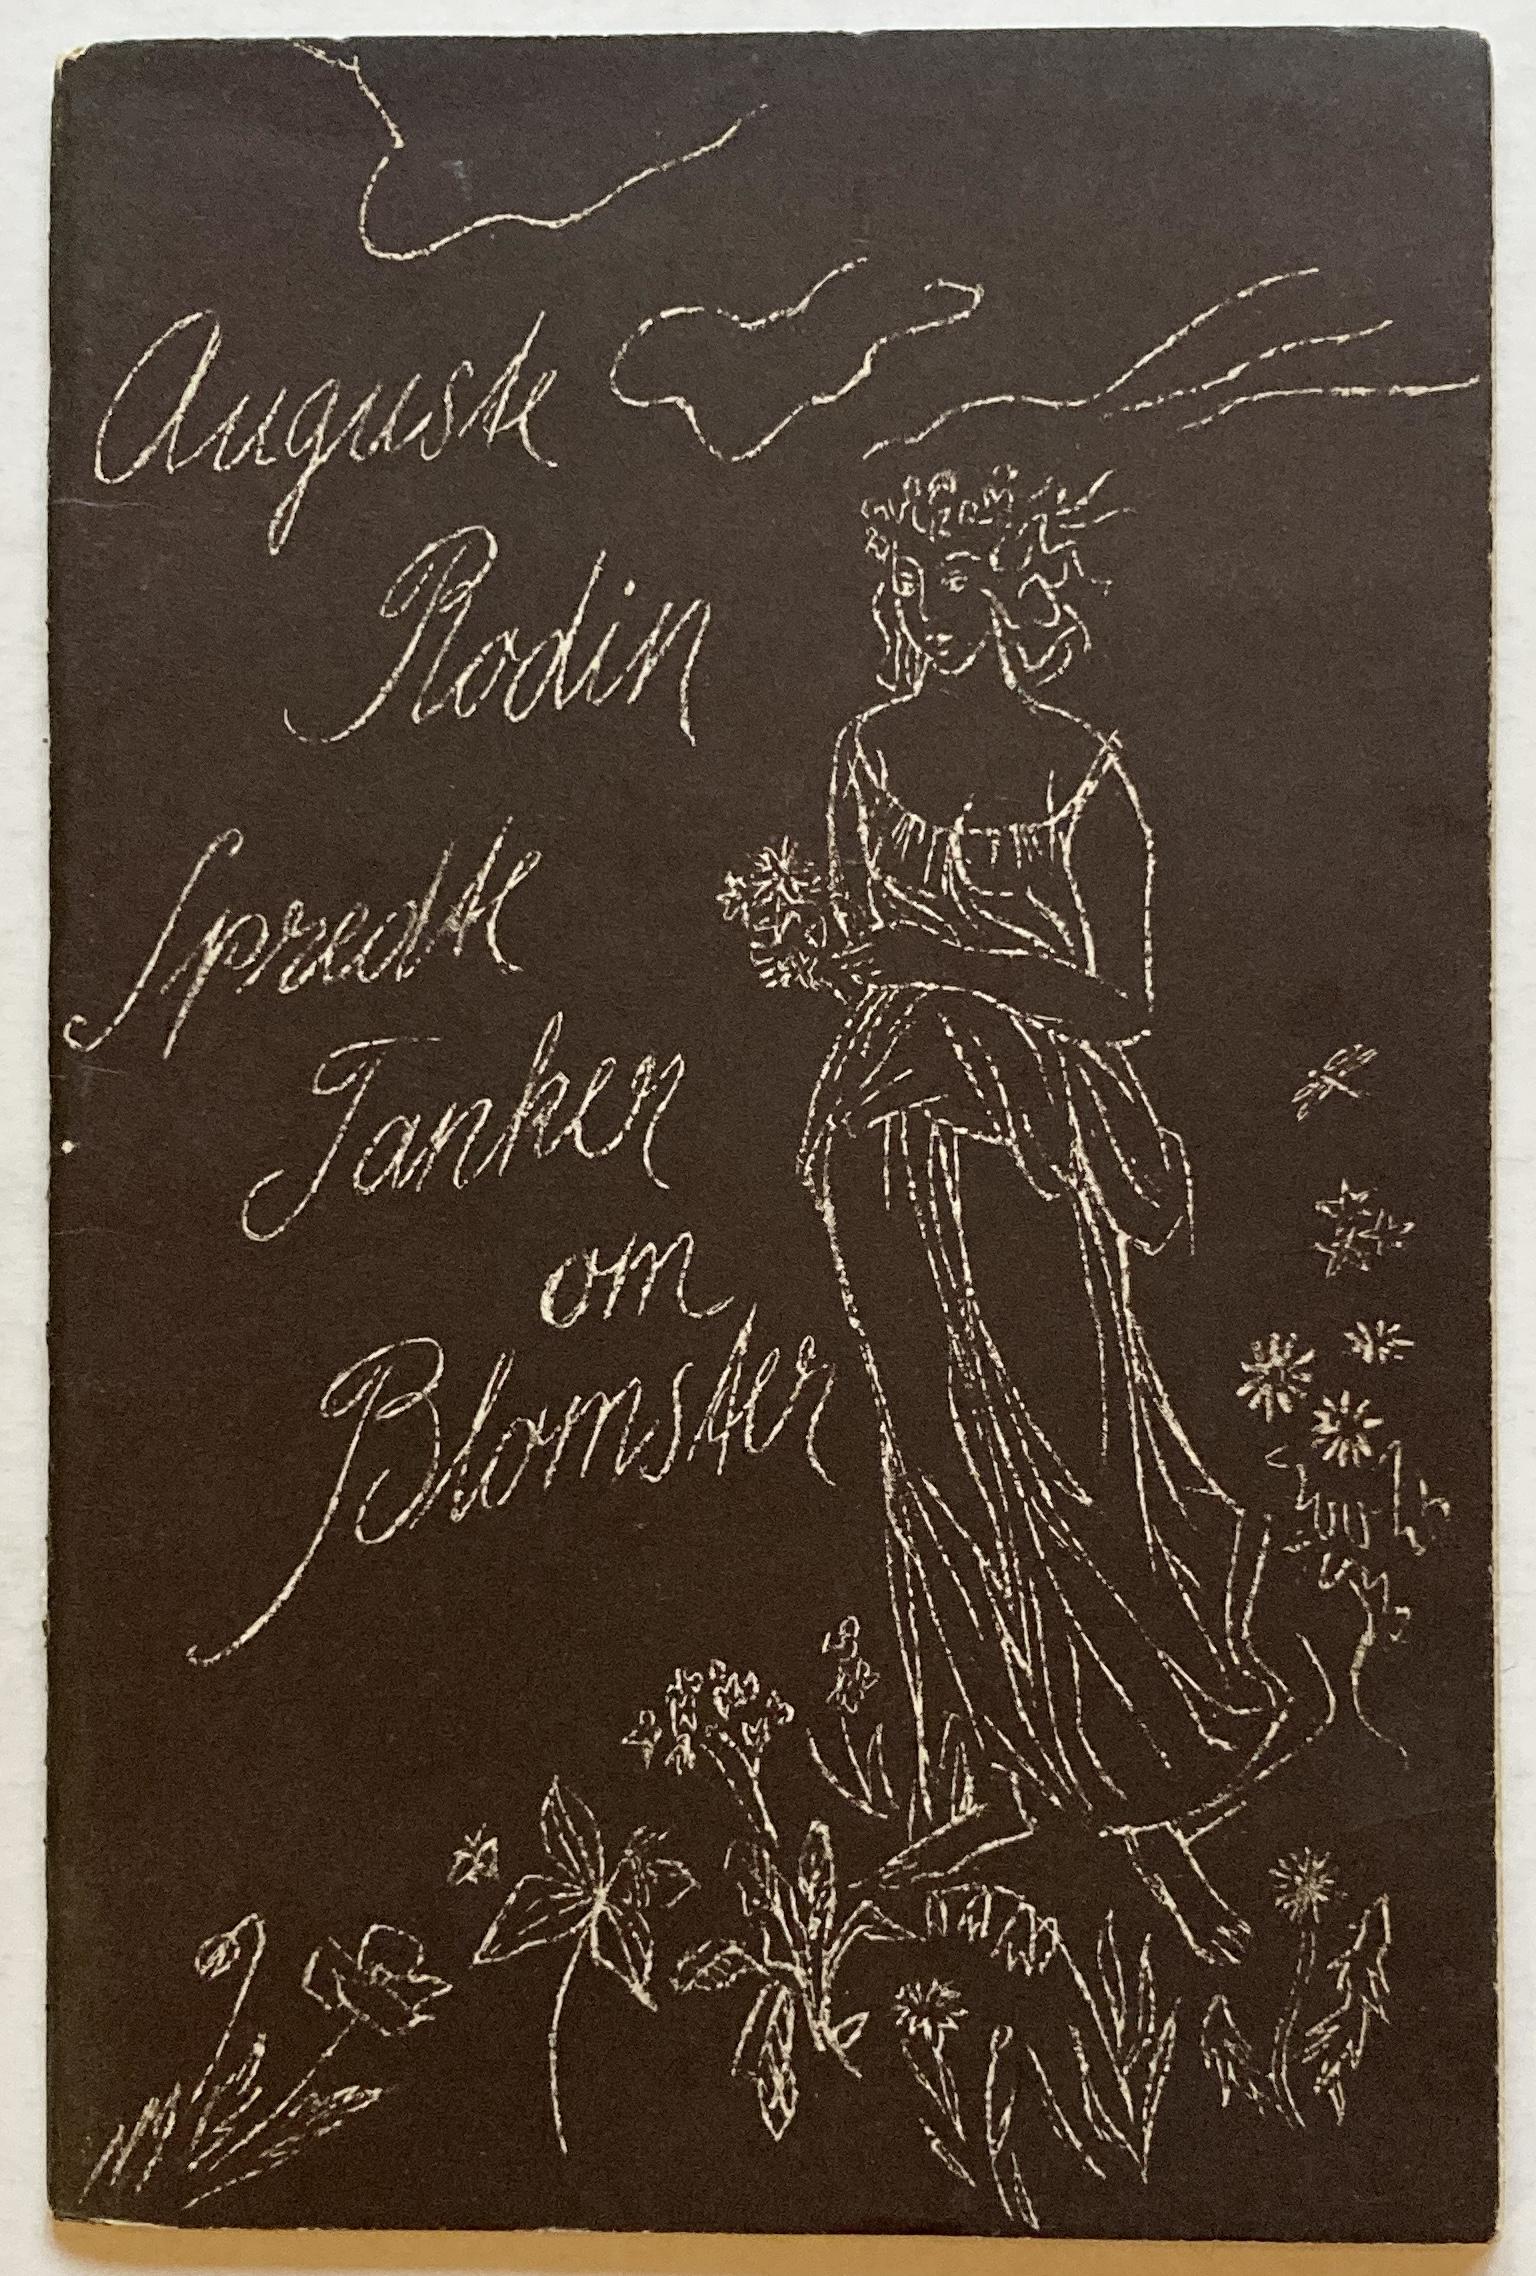 Auguste
Rodin
Spredte
Tanker
om
Blomster